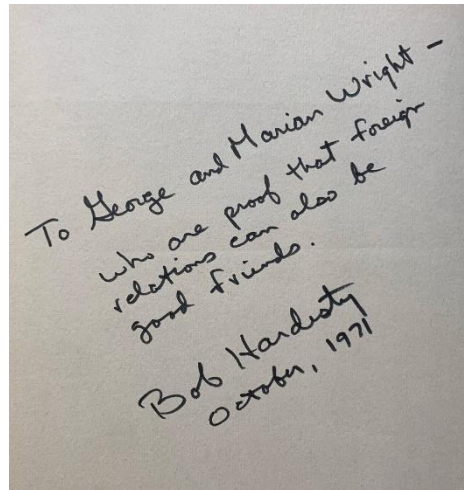 To George and Marian Wright –
who are proof that foreign
relations can also be
good friends.
Bob Hardesty
October, 1971